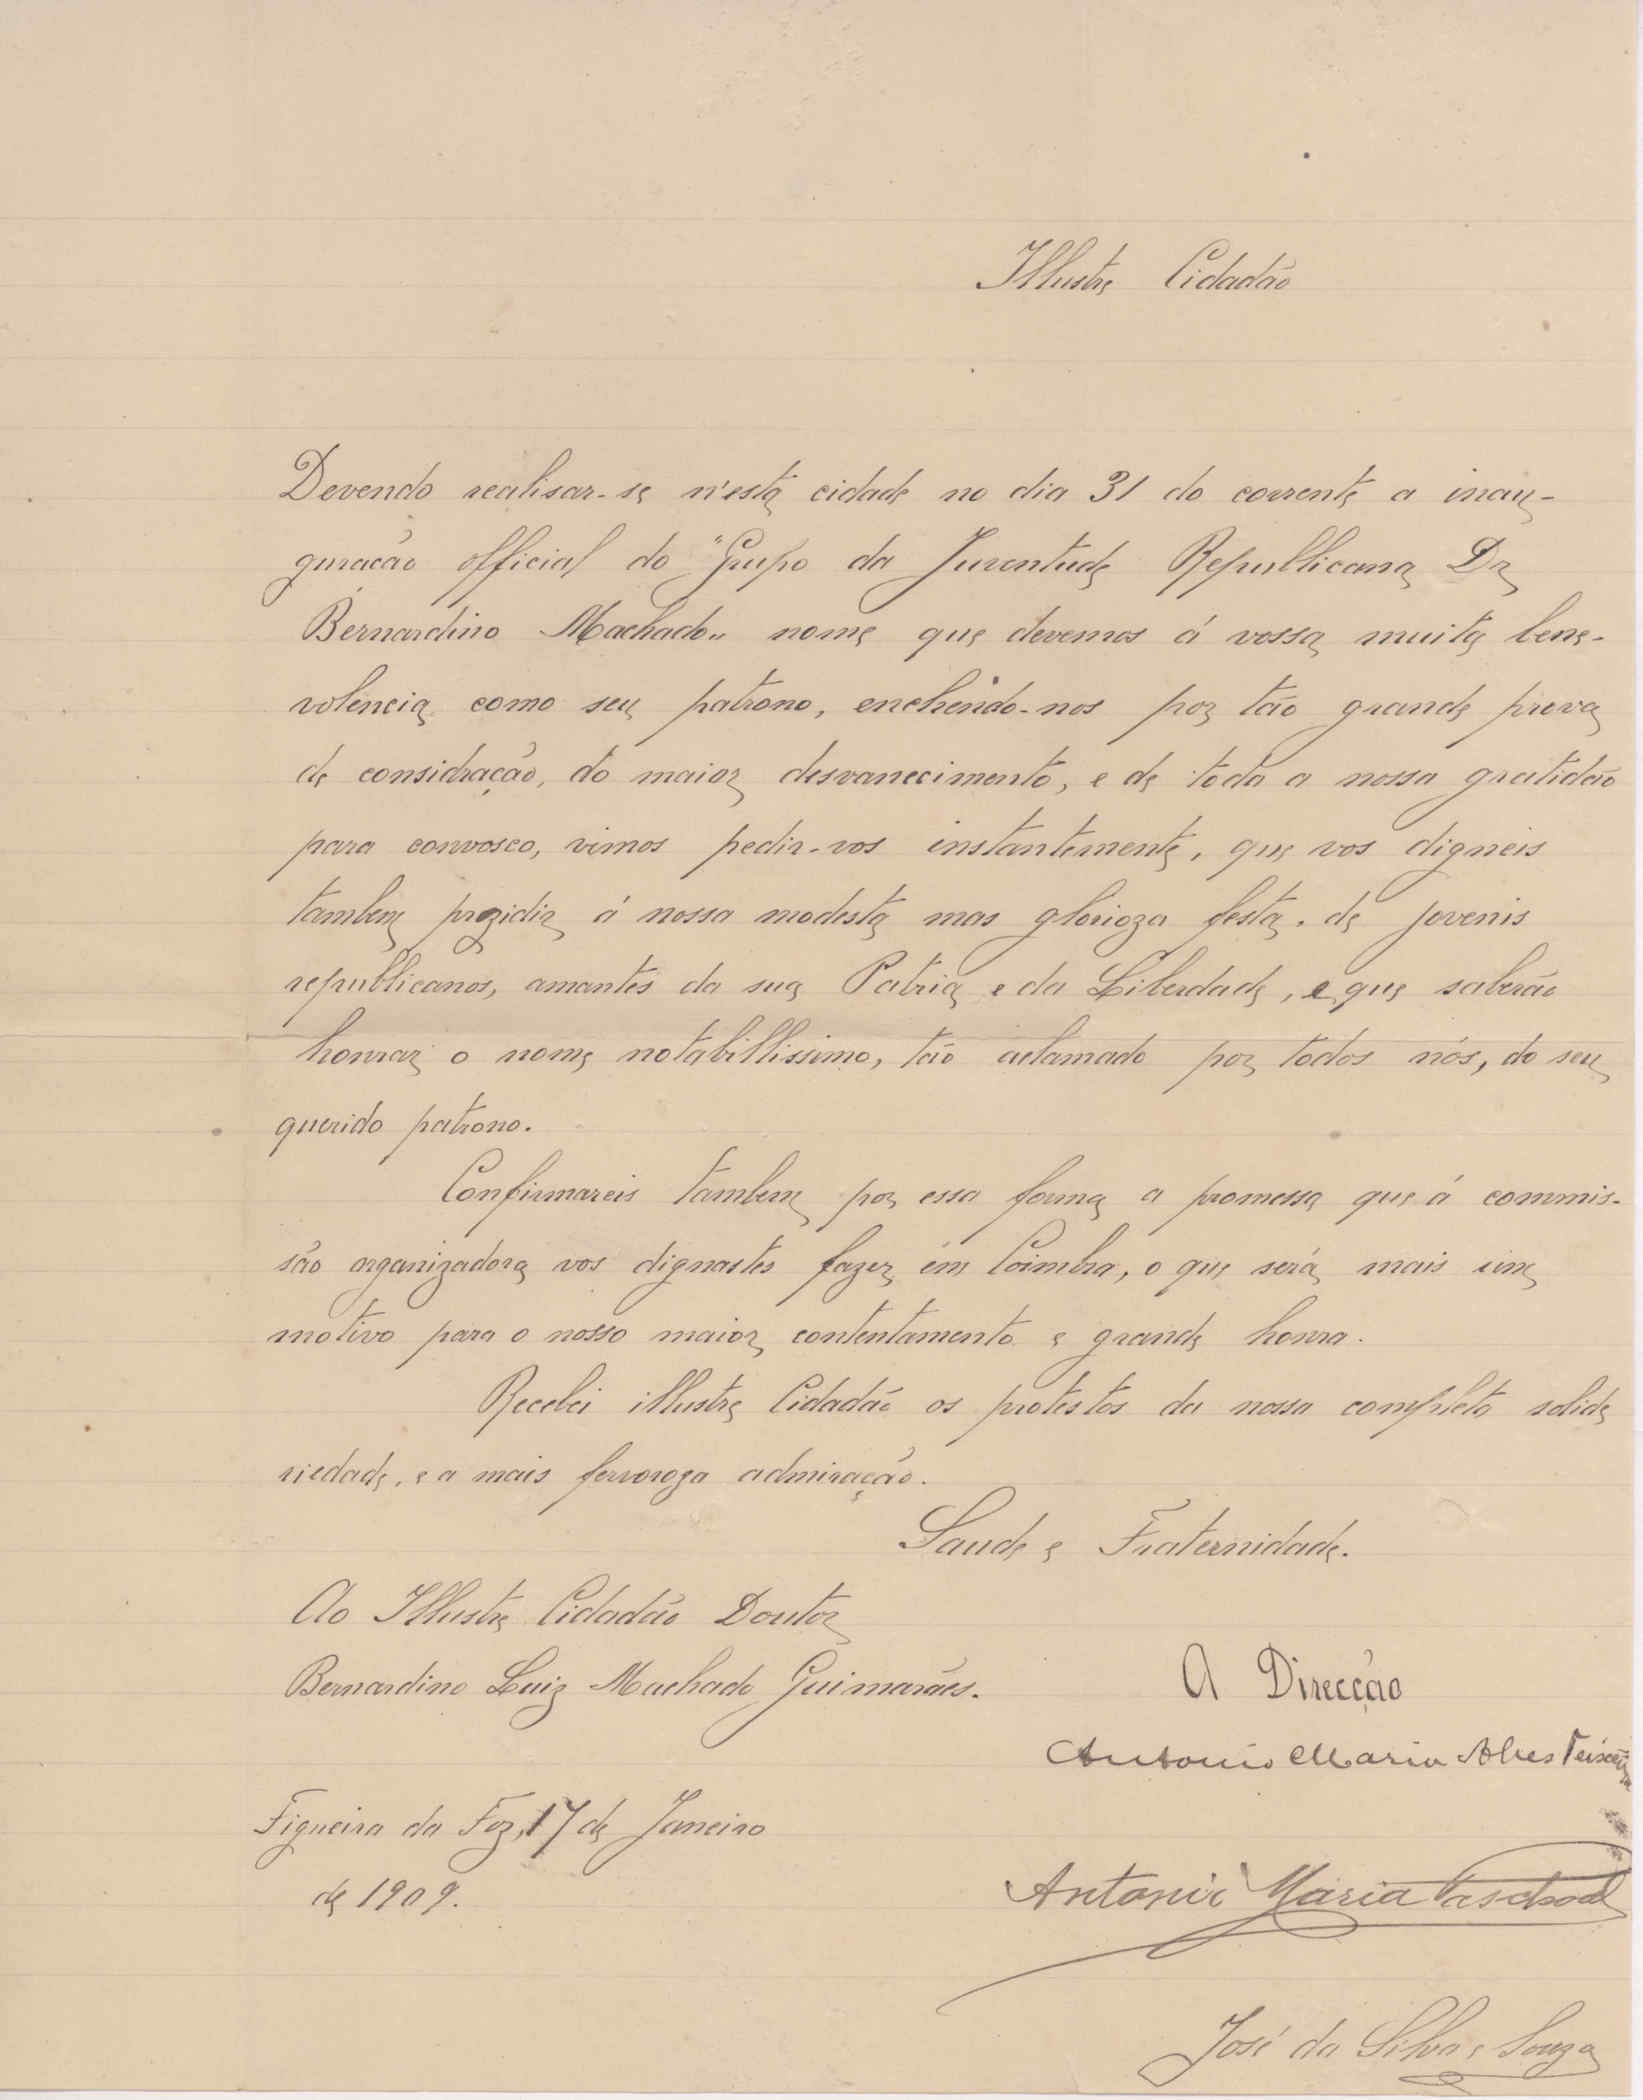 Illustre Cidadão
Devendo realisar-se n'esta cidade no dia 31 do corrente a inau-
guração official do "Grupo da Juventude Republicana Dr
Bernardino Machado" nome que devemos á vossa muita bene-
volencia como seu patrono, enchendo-nos por tão grande prova
de consideração, do maior desvanecimento, e de toda a nossa gratidão
para convosco, vimos pedir-vos instantemente, que vos digneis
tambem prezidir á nossa modesta mas glorioza festa, de jovenis
republicanos, amantes da sua Patria e da Liberdade, e que saberão
honrar o nome notabillissimo, tão aclamado por todos nós, do seu
querido patrono.
Confirmareis tambem por essa forma a promessa que á commis-
são organizadora vos dignastes fazer em Coimbra, o que será mais um
motivo para o nosso maior contentamento e grande honra.
Recebei illustre Cidadão os protestos da nossa completa solida
riedade, e a mais fervoroza admiração.
Saude e Fraternidade.
Ao Illustre Cidadão Doutor
Bernardino Luiz Machado Guimarães.
A Direcção
Antonio Maria Alves Teixeira
Figueira da Foz, 17 de Janeiro
de 1909.
Antonio Maria Paschoal
José da Silva e Souza